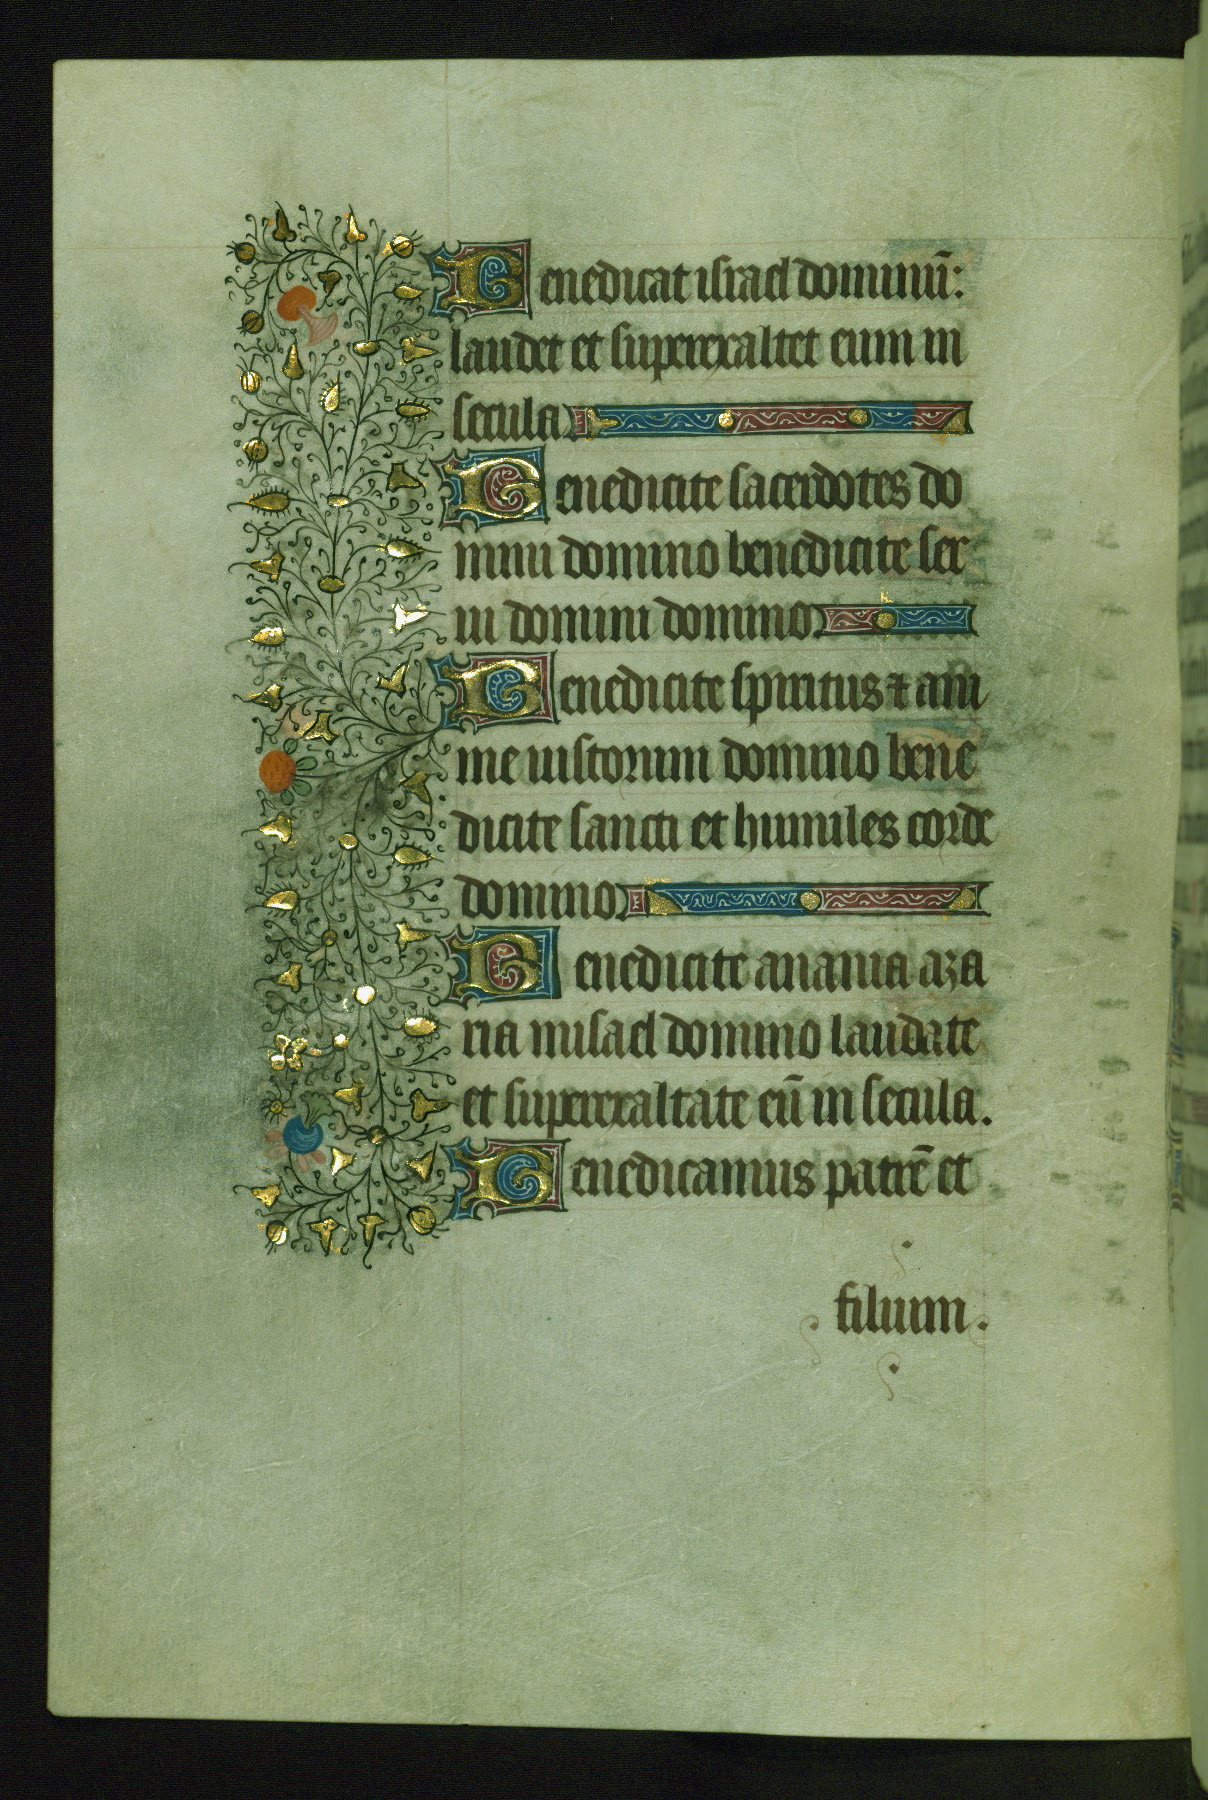 Benedicat israel dominū:
laudet et superexaltet eum in
secula
Benedicite sacerdotes do
mini domino benedicite ser
ui domini domino
Benedicite spiritus ⁊ ani
me iustorum domino bene
dicite sancti et humiles corde
domino
Benedicite anania aza
ria misael domino laudate
et superexaltate eū in secula.
Benedicamus patrē et
filium.